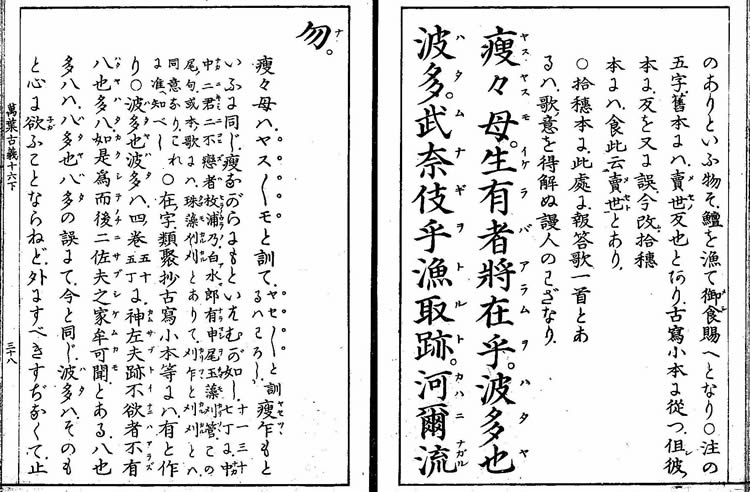 のありといふ物ぞ、鱣を漁て御食賜へとなり○注の
五字、舊本には、賣世反也とあり、古寫小本に從つ、但彼
本に、反を又に誤、今改、拾穗
本には、食此云賣世とあり、
○拾穗本に、此處に、報答歌一首とあ
るは、歌意を得解ぬ謾人のわざなり、
瘦々母。生有者將在乎。波多也
波多。武奈伎乎漁取跡。河爾流
勿。
瘦々母はヤス〱モと訓て、ヤセ〱と訓るはわろし、瘦乍もと
いふに同じ、瘦ながらにもといはむが如し、
中二君二不戀者枚浦乃白水郎有申尾玉藻刈管、この
尾ノ句、或本歌には、珠藻刈々とありて、刈乍と刈刈とは、
同意なり、これに准知べし、○在ノ字、類聚抄古寫小本等には、有と作
り○波多也波多は、四卷五十五丁に、神左夫跡不欲者不有
八也多八如是爲而後二佐夫之家牟可聞とある、八也
多八は、八多也八多の誤にて、今と同じ、波多は、そのも
と心に欲ふことならねど、外にすべきすぢなくて、止
萬葉古義十六下
三十八